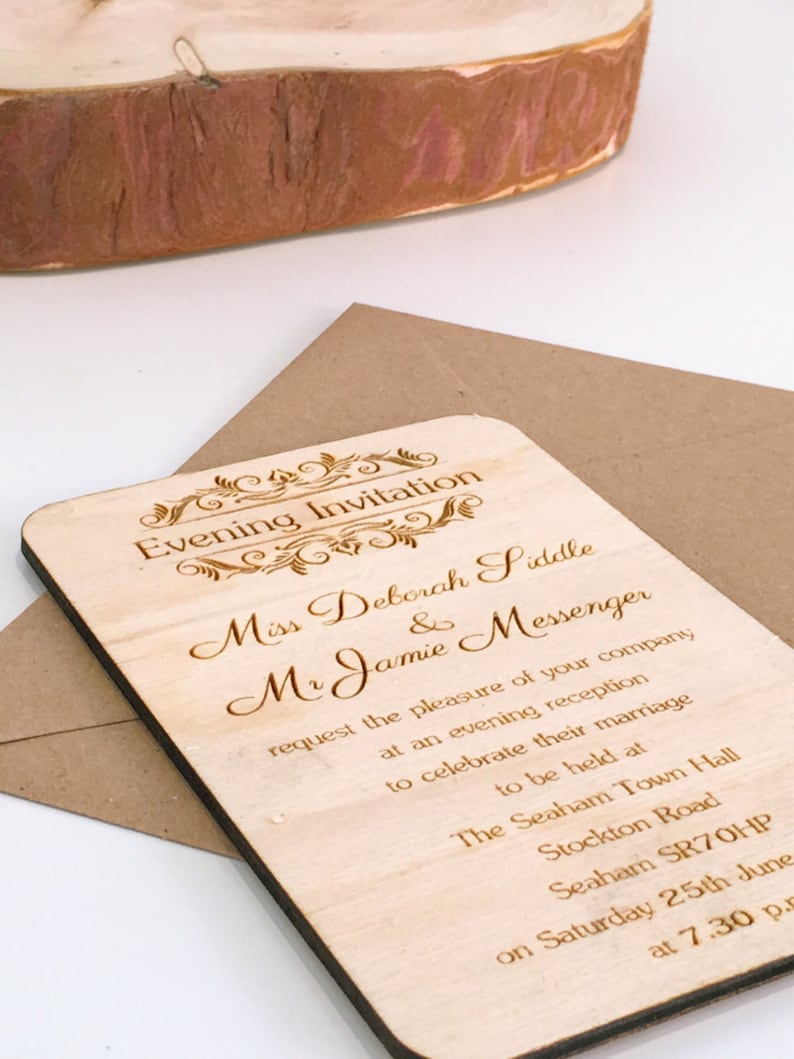 Evening Invitation
Miss Deborah Siddle
&
Mr Jamie Messenger
request the pleasure of your company
at an evening reception
to celebrate their marriage
to be held at
The Seaham Town Hall
Stockton Road
Seaham SR70HP
on Saturday 25th June
at 7.30 p.